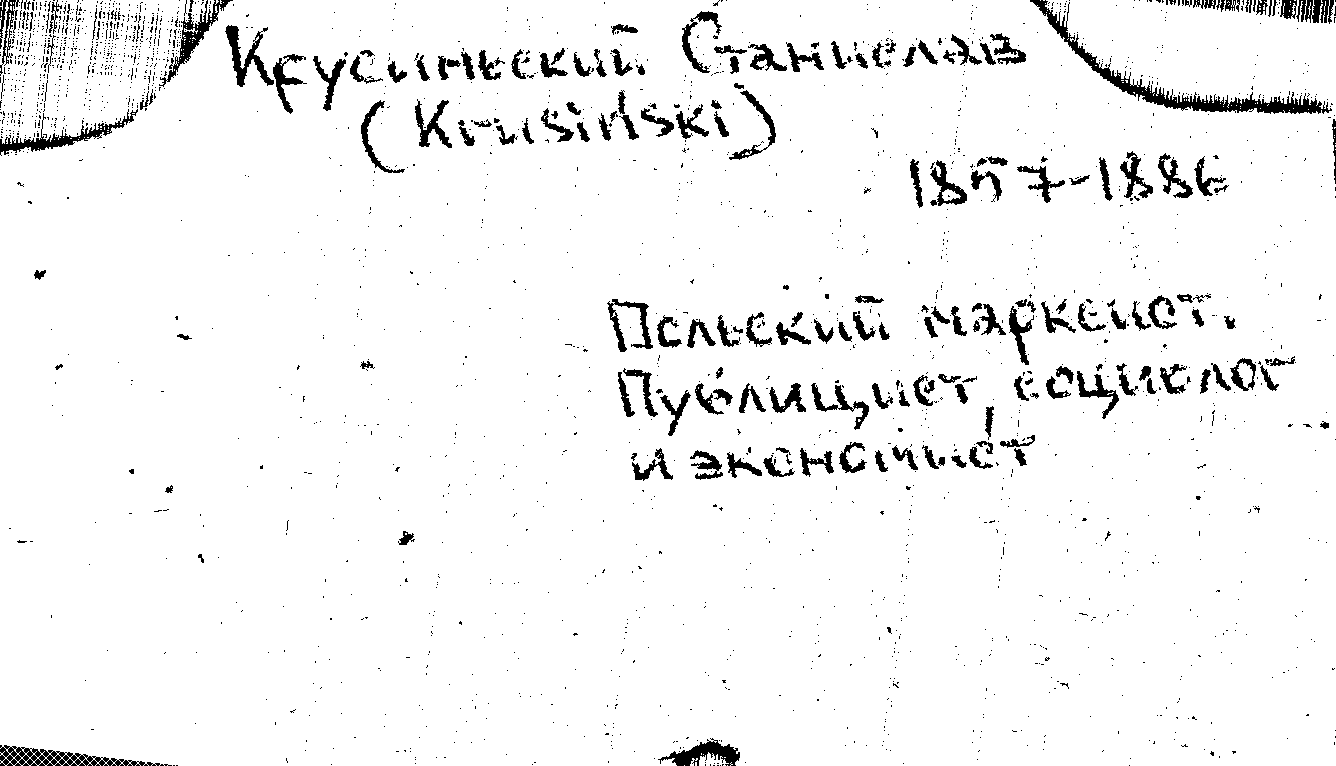 Крусиньский Станислав
(Krusiński)
1857-1886
Польский марксист.
Публицист, социолог
и экономист